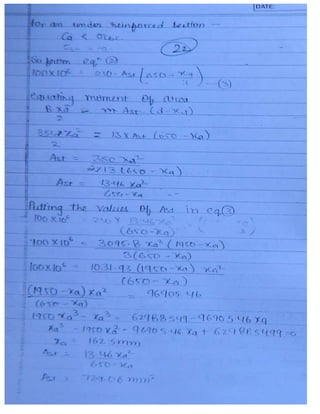 DATE
For an under reinforced section -
Ca < σcbc
(23)
So from eqⁿ (2)
100x10⁶ = 230. Ast (650 - xa/3) -(3)
equating moment of area
B xa²/2 = m Ast (d - xa)
350 xa²/2 = 13 x Ast (650 - xa)
Ast = 350 xa² / 2x13 (650 - xa)
Ast = 13.46 xa² / 650 - xa
Putting the values of Ast in eq (3)
100 x10⁶ = 230 x 13.46 xa² / (650 - xa)
100 x10⁶ = 3095.8 xa² (1950 - xa) / 3(650 - xa)
100x10⁶ = 1031.93 (1950 - xa) xa² / (650 - xa)
(1950 - xa) xa² / (650 - xa) = 96905.46
1950 xa² - xa³ = 62988549 - 96905.46 xa
xa³ - 1950 xa² - 96905.46 xa + 62988549 = 0
xa = 162.5mm
Ast = 13.46 xa² / 650 - xa
Ast = 729.06 mm²